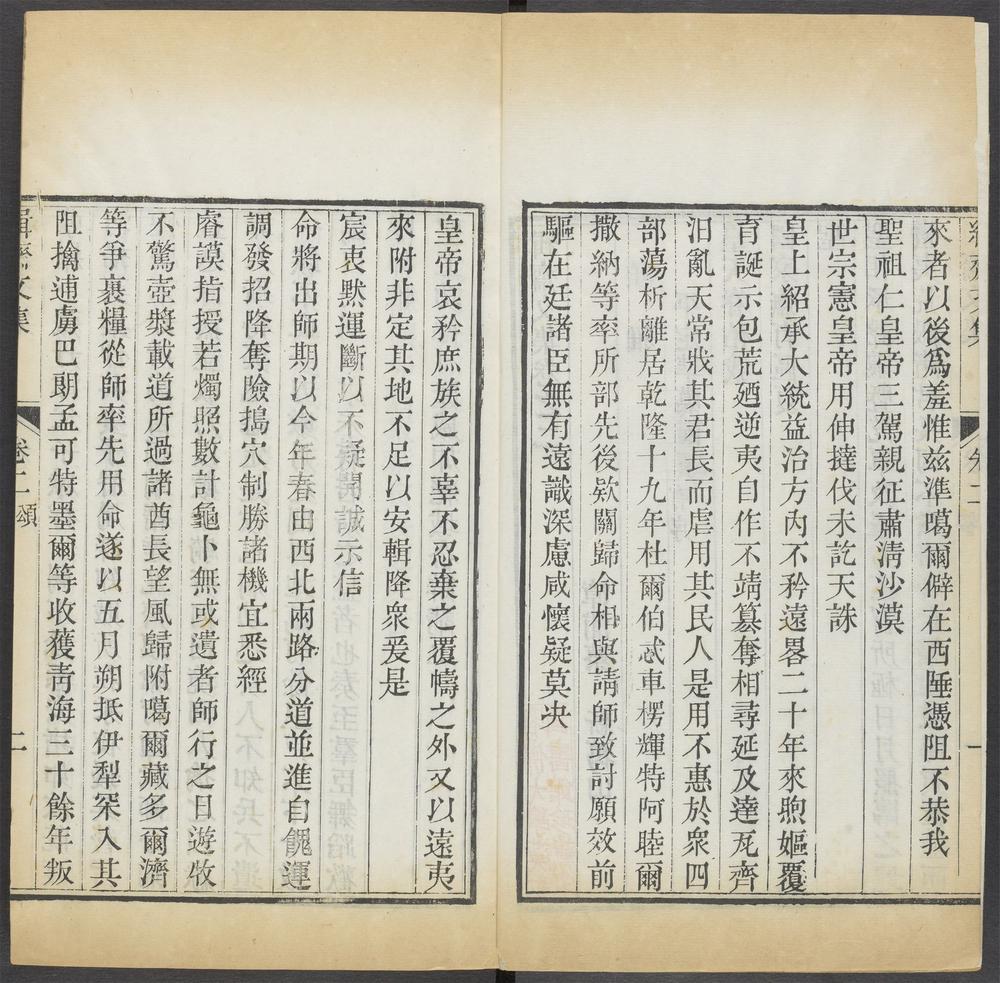 來者以後爲羞惟兹準噶爾僻在西陲憑阻不恭我
聖祖仁皇帝三駕親征肅淸沙漠
世宗憲皇帝用伸撻伐未訖天誅
皇上紹承大統益治方內不矜遠畧二十年來煦嫗覆
育誕示包荒廼逆夷自作不靖簒奪相尋延及達瓦齊
汨亂天常戕其君長而虐用其民人是用不惠於衆四
部蕩析離居乾隆十九年杜爾伯忒車楞輝特阿睦爾
撒納等率所部先後欵關歸命相與請師致討願效前
驅在廷諸臣無有遠識深慮咸懷疑莫决
皇帝哀矜庶族之不辜不忍棄之覆幬之外又以遠夷
來附非定其地不足以安輯降衆爰是
宸衷默運斷以不疑開誠示信
命將出師期以今年春由西北兩路分道並進自餽運
調發招降奪險搗穴制勝諸機宜悉經
睿謨指授若燭照數計龜卜無或遺者師行之日遊牧
不驚壺漿載道所過諸酋長望風歸附噶爾藏多爾濟
等爭裹糧從師率先用命遂以五月朔抵伊犁罙入其
阻擒逋虜巴朗孟可特墨爾等收獲靑海三十餘年叛
緝齋文集
卷二頌
二